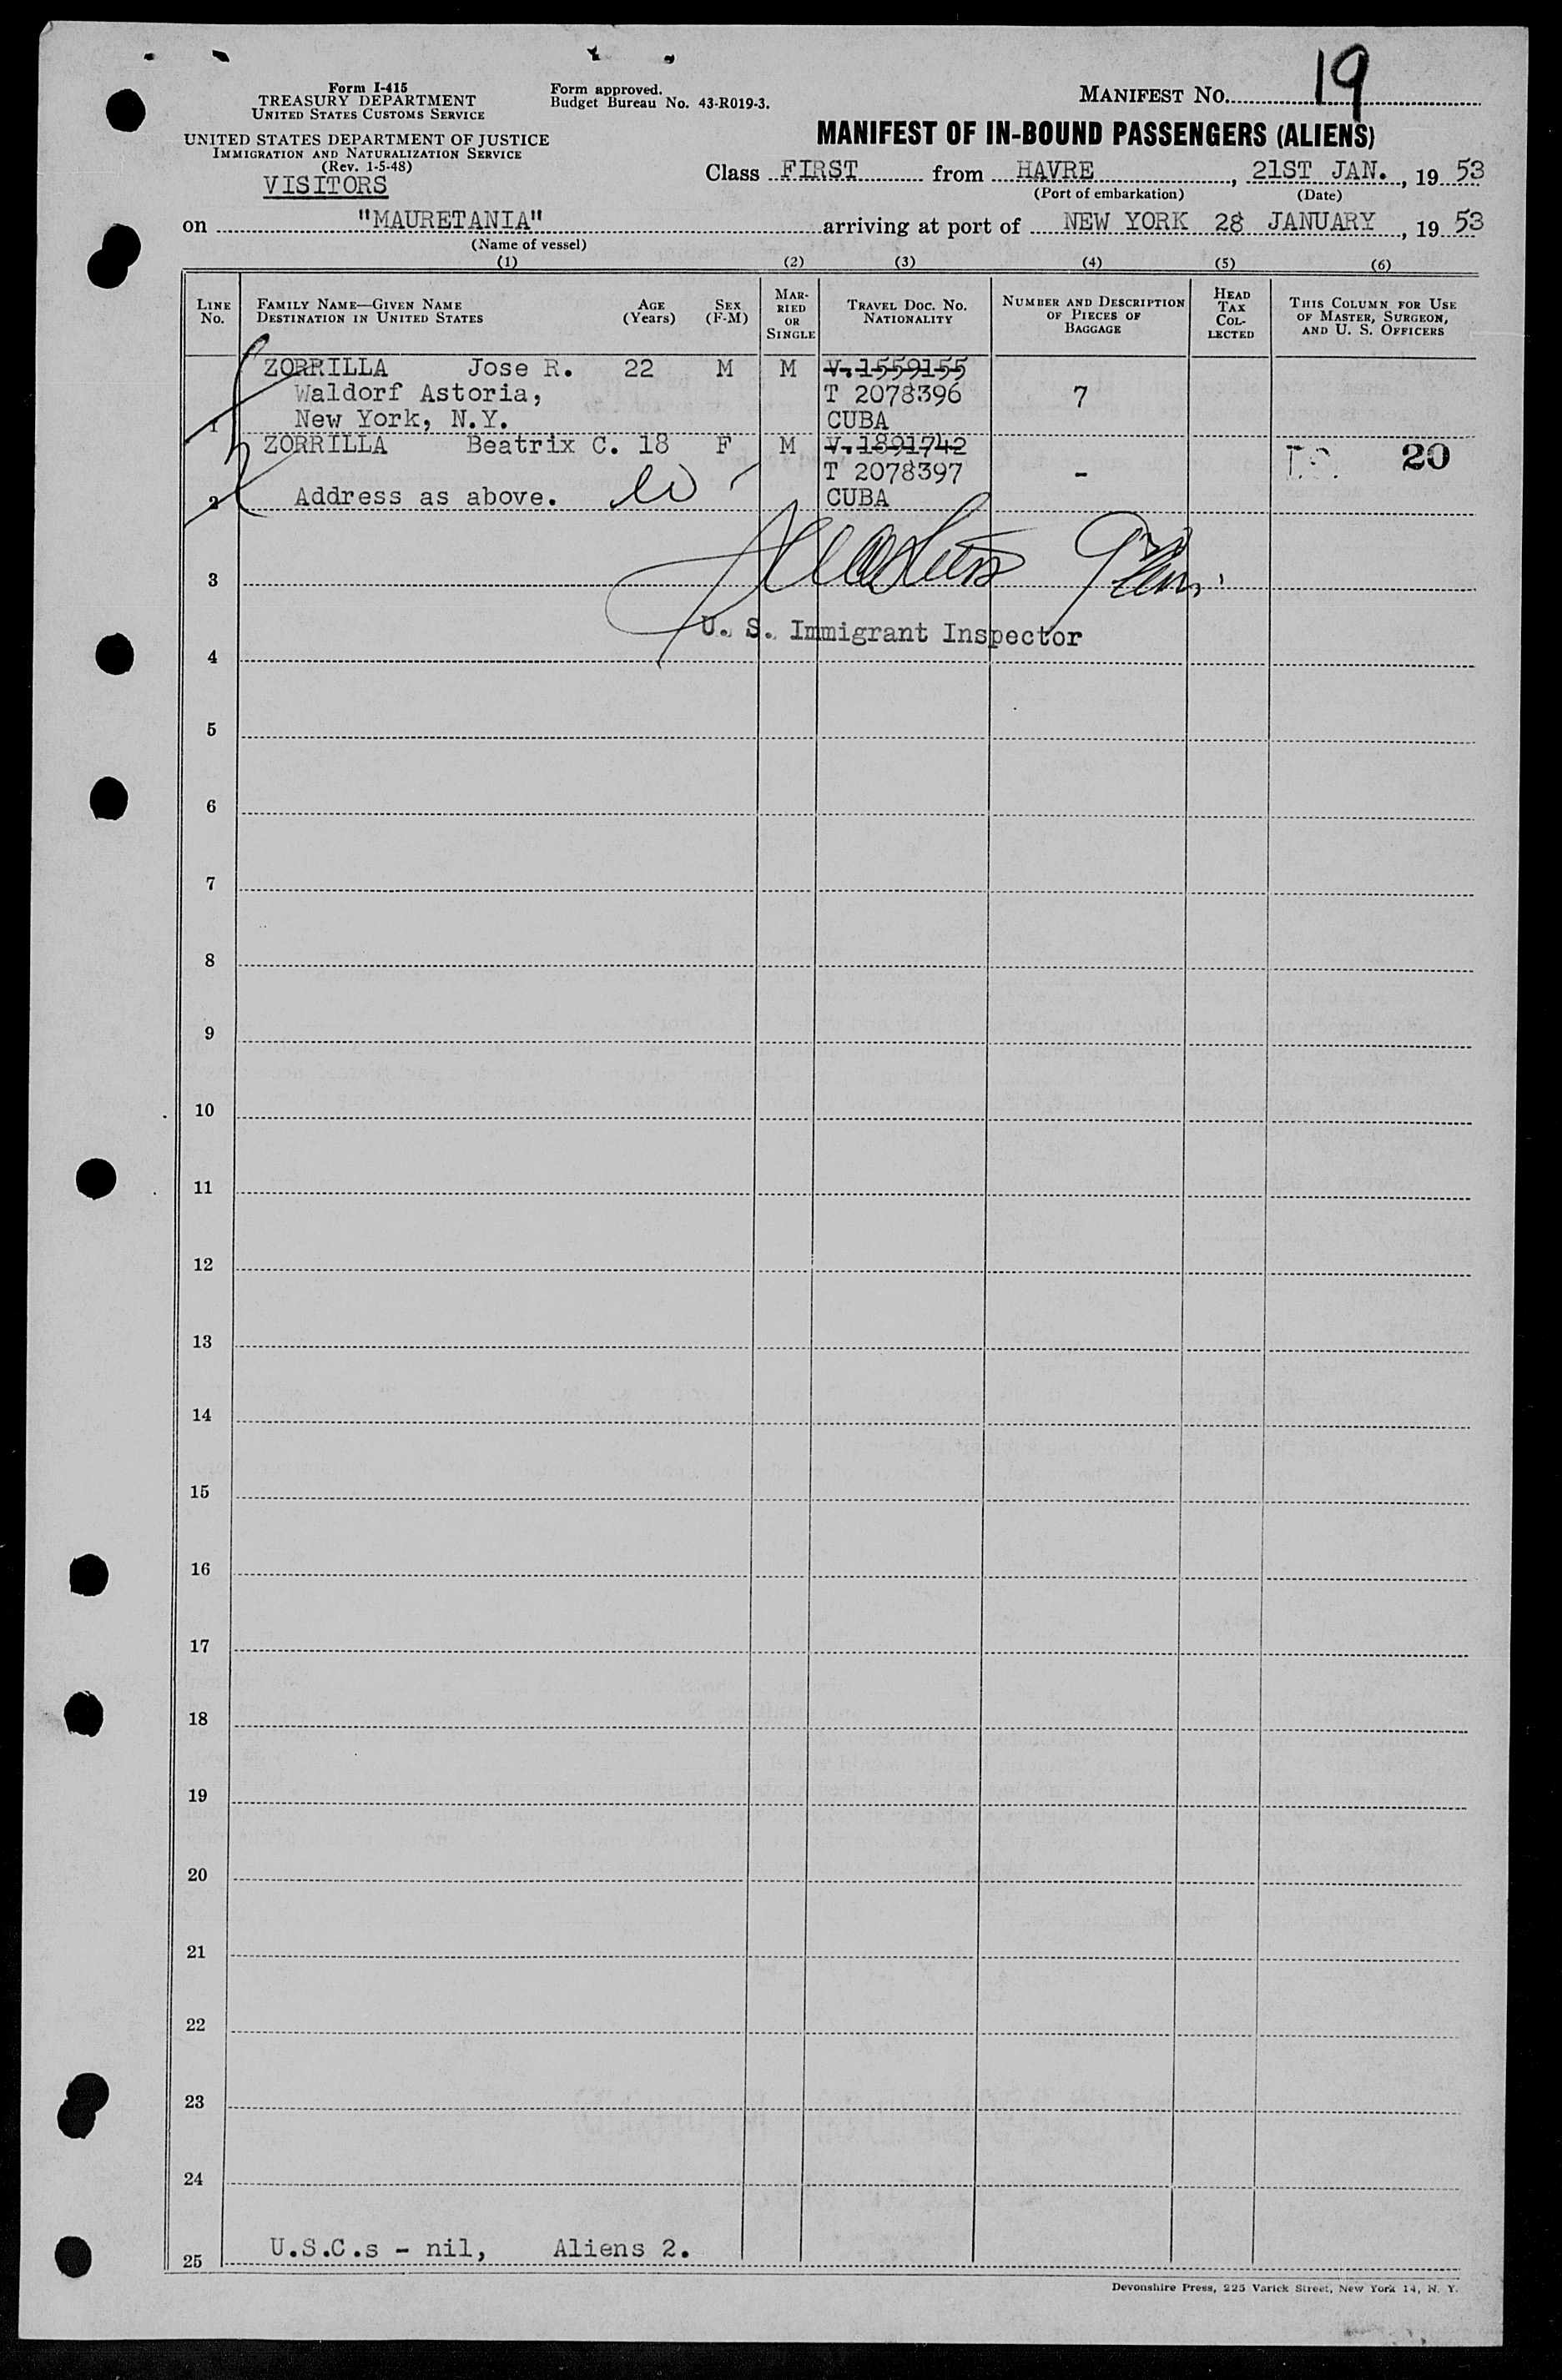 19
Form I-415
TREASURY DEPARTMENT
UNITED STATES CUSTOMS SERVICE
Form approved.
Budget Bureau No. 43-R019-3.
MANIFEST NO.
UNITED STATES DEPARTMENT OF JUSTICE
IMMIGRATION AND NATURALIZATION SERVICE
(Rev. 1-5-48)
VISITORS
MANIFEST OF IN-BOUND PASSENGERS (ALIENS)
Class FIRST from HAVRE, 21ST JAN., 19 53
(Port of embarkation) (Date)
on "MAURETANIA" arriving at port of NEW YORK 28 JANUARY, 19 53
(Name of vessel)
(1) (2) (3) (4) (5) (6)
LINE No.
FAMILY NAME—GIVEN NAME
DESTINATION IN UNITED STATES
AGE (Years)
SEX (F-M)
MARRIED OR SINGLE
TRAVEL DOC. NO.
NATIONALITY
NUMBER AND DESCRIPTION OF PIECES OF BAGGAGE
HEAD TAX COLLECTED
THIS COLUMN FOR USE OF MASTER, SURGEON, AND U. S. OFFICERS
ZORRILLA Jose R. 22 M M V.1559155
Waldorf Astoria, T 2078396 7
1 New York, N.Y. CUBA
ZORRILLA Beatrix C. 18 F M V.1891742 20
T 2078397 -
2 Address as above. CUBA
3
U. S. Immigrant Inspector
4
5
6
7
8
9
10
11
12
13
14
15
16
17
18
19
20
21
22
23
24
25 U.S.C.s - nil, Aliens 2.
Devonshire Press, 225 Varick Street, New York 14, N. Y.